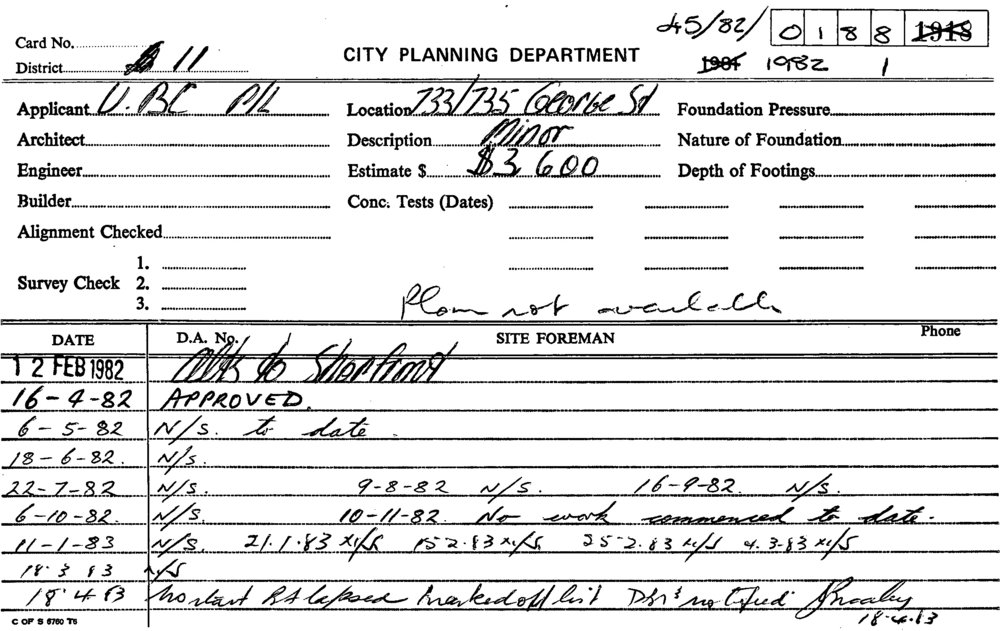 45/82/ 0 1 8 8 1918
Card No.
District 11 CITY PLANNING DEPARTMENT 1981 1982 1
Applicant U.BC P/L Location 733/735 George St Foundation Pressure
Architect Description Minor Nature of Foundation
Engineer Estimate $ $3 600 Depth of Footings
Builder Conc. Tests (Dates)
Alignment Checked
1.
Survey Check 2.
3.
Plan not available
DATE D.A. No. SITE FOREMAN Phone
12 FEB 1982 Alts to Shopfront
16-4-82 APPROVED.
6-5-82 N/S. to date.
18-6-82. N/S.
22-7-82 N/S. 9-8-82 N/S. 16-9-82. N/S.
6-10-82. N/S. 10-11-82. No work commenced to date.
11-1-83 N/S. 21.1.83 N/S 15 2.83 N/S 25-2.83 N/S 4.3.83 N/S
18.3 83 N/S
18.4 83 No start BA lapsed Marked off list notified
18.4.83
C OF S 6760 T5